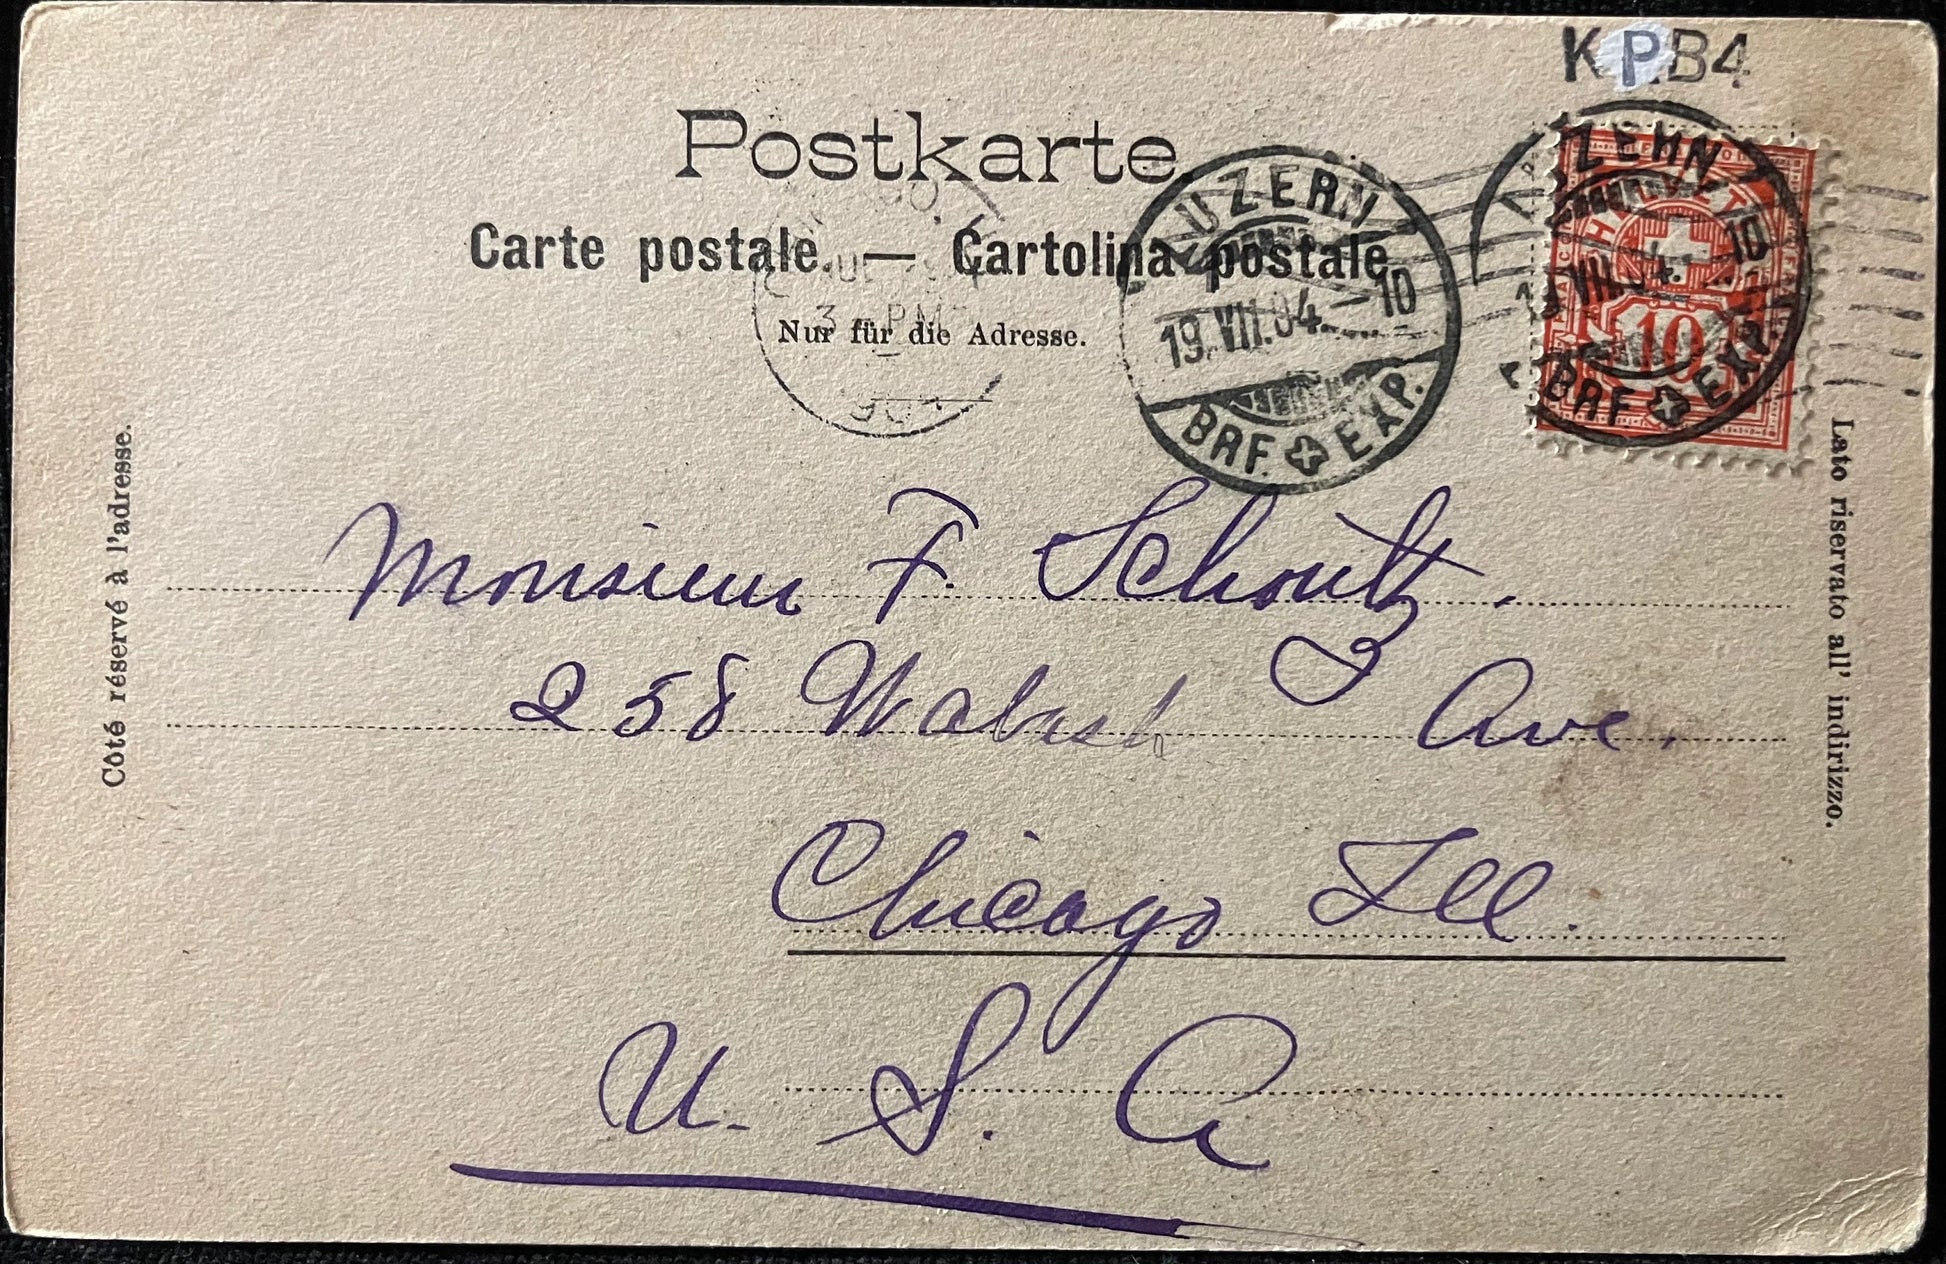 KPB4
Postkarte.
Carte postale. — Cartolina postale
Nur für die Adresse.
LUZERN
19.VII.04.–10
BRF. EXP.
3 PM
1904
ZERN
VII.04.–10
BRF EXP.
HELVETIA
10
Côté réservé à l'adresse.
Lato riservato all' indirizzo.
Monsieur F. Schoultz.
258 Wabash Ave.
Chicago Ill.
U. S. A